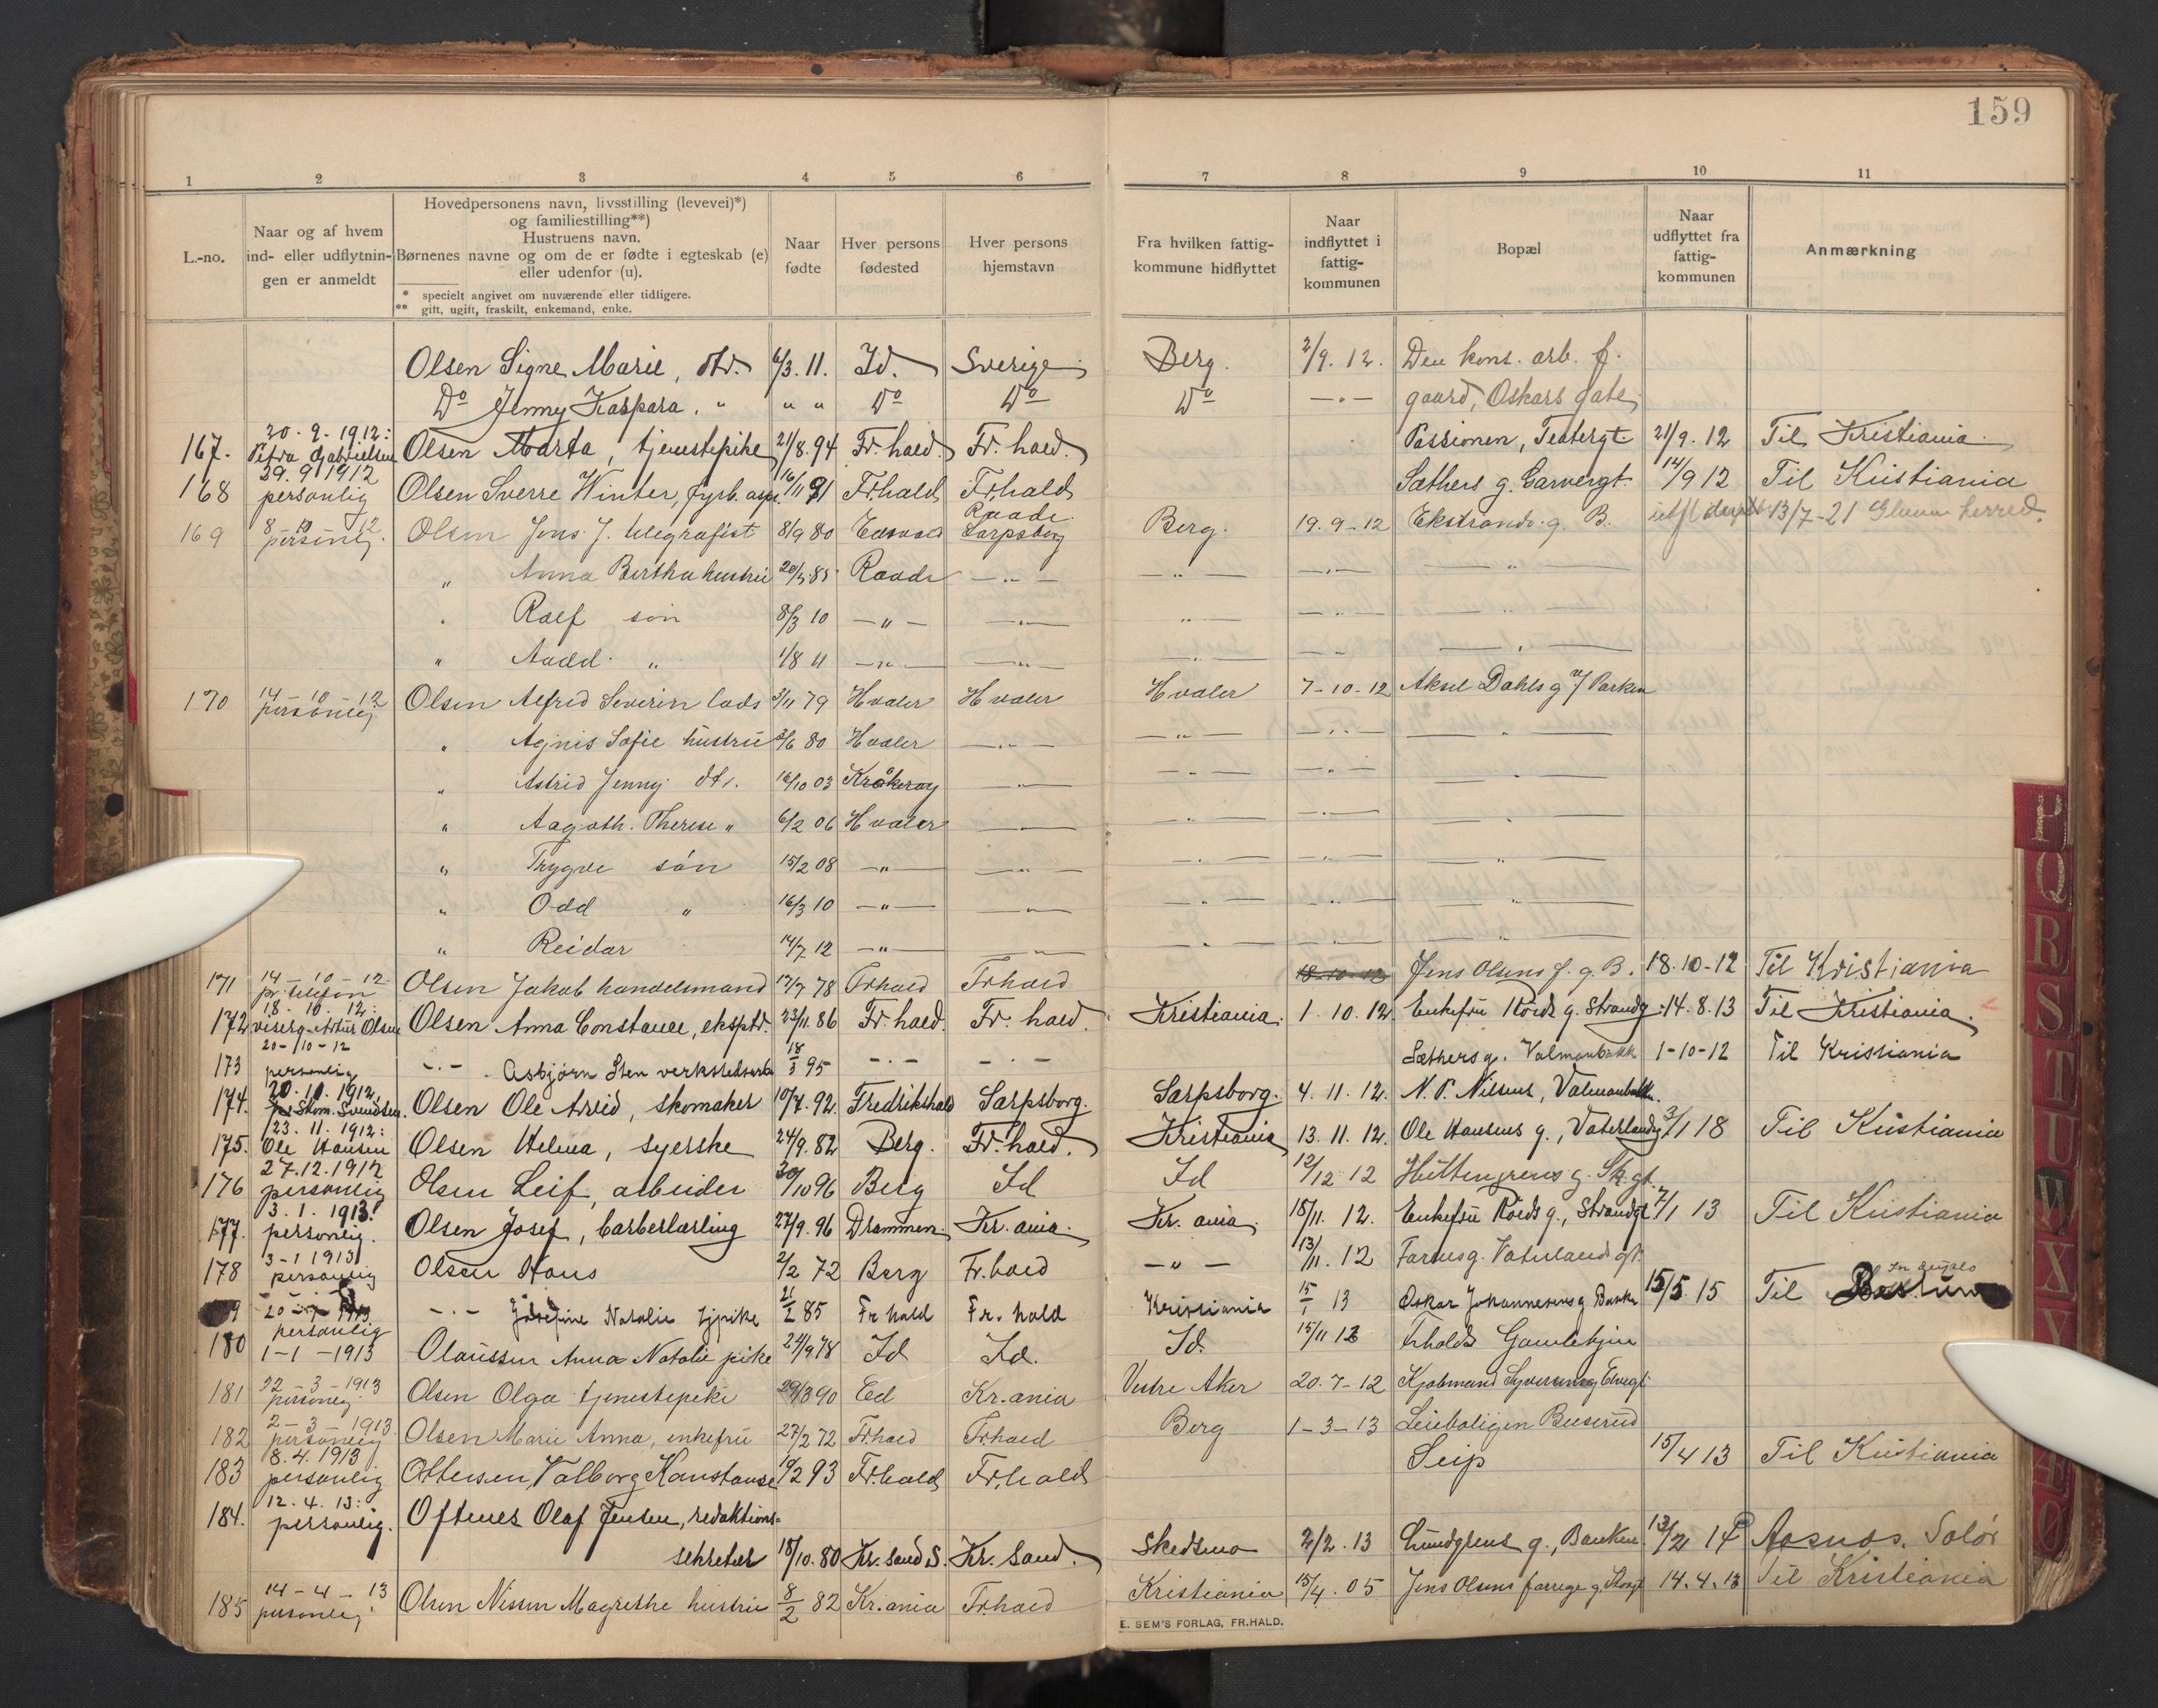 159
1 2 3 4 5 6 7 8 9 10 11
L.-no.
Naar og af hvem
ind- eller udflytnin-
gen er anmeldt
Hovedpersonens navn, livsstilling (levevei)*)
og familiestilling**)
Hustruens navn.
Børnenes navne og om de er fødte i egteskab (e)
eller udenfor (u).
* specielt angivet om nuværende eller tidligere.
** gift, ugift, fraskilt, enkemand, enke.
Naar
fødte
Hver persons
fødested
Hver persons
hjemstavn
Fra hvilken fattig-
kommune hidflyttet
Naar
indflyttet i
fattig-
kommunen
Bopæl
Naar
udflyttet fra
fattig-
kommunen
Anmærkning
Olsen Signe Marie, dtr. 6/3. 11. Id. Sverige Berg. 2/9. 12. Den kons. arb. f.
Do Jenny Kaspara. " " " Do Do Do — " — gaard, Oskars gate
30. 9. 1912:
167. Petra Gabrielsen Olsen Marta, tjenestepike 21/8. 94 Fr. hald. Fr. hald. Passionen, Teatergt. 21/9. 12 Til Kristiania
29. 9 1912
168 personlig Olsen Sverre Winter, fyrb. asp. 16/11 91 Fr.hald Fr.hald Sæthers g. Garvergt. 14/9 12 Til Kristiania
8 – 10 – 12 Raade
169 personlig. Olsen Jens J. telegrafist 8/9 80 Sarpsborg Berg. 19. 9 - 12 Ekstrands. g. B. 13/7 - 21 Glemm herred.
" Anna Bertha hustru 85 Raade — " — — " — — " — — " —
" Ralf søn 8/3 10 — " — — " — — " — — " —
" Aadd. " 1/8 11 — " — — " — — " — — " — — " —
14 – 10 – 12
170 personlig Olsen Alfred Severin lods 3/11 79 Hvaler Hvaler Hvaler 7 - 10 - 12 Aksel Dahls g v/ Parken
" Agnis Sofie hustru 3/6 80 Hvaler — " — — " — — " — — " —
" Astrid Jenny dtr. 16/10 03 Kråkerøy — " — — " — — " — — " —
" Aagoth. Therese " 6/2 06 Hvaler — " — — " — — " — — " —
" Trygve søn 15/2 08 — " — — " — — " — — " — — " —
" Odd " 16/3 10 — " — — " — — " — — " — — " —
" Reidar 14/7 12 — " — — " — — " — — " — — " —
14 – 10 – 12
171 pr. telefon Olsen Jakob handelsmand 17/7 78 Frhald Frhald 18-10-12 Jens Olsens f. g. B. 18. 10 - 12 Til Kristiania
18. 10. 12:
172 viserg. Artur Olsen Olsen Anna Constance, eksptr. 23/11. 86 Fr. hald. Fr. hald. Kristiania. 1. 10. 12. Enkefru Röeds g. Strandg. 14. 8. 13 Til Kristiania.
20 - 10 - 12
173 personlig — " — Asbjørn Sten verkstedsarb 18/3 95 — " — — " — Sæthers g. Valmanbakk 1 - 10 - 12 Til Kristiania
20. 10. 1912,
174. Skom. Svendsen. Olsen Ole Arvid, skomaker 10/7. 92. Fredrikshald Sarpsborg. Sarpsborg. 4. 11. 12. N. P. Nilsens, Valmanbakk.
23. 11. 1912:
175. Ole Hansen Olsen Helma, syerske 24/9. 82 Berg. Fr. hald. Kristiania 13. 11. 12. Ole Hansens g., Vaterlandg 3/1 18 Til Kristiania
27. 12. 1912
176 personlig Olsen Leif, arbeider 30/10 96 Berg Id Id 12/12 12 Huttengrens g. Sk.gt.
3. 1. 1913.
177. personlig. Olsen Josef, barberlærling 27/9. 96 Drammen Kr. ania. Kr. ania. 18/11. 12. Enkefru Röeds g., Strandgt 7/1 13 Til Kristiania
3 - 1 1913
178 personlig Olsen Hans 2/2 72 Berg Fr. hald — " — 13/11. 12 Farnes g. Vaterlands gt.
9 1913 — " — Josefine Natalie tjpike 21/1 85 Fr hald Fr. hald Kristiania 15/1 13 Oskar Johannesens g Banken 15/5 15 Til
personlig
180 1 – 1 – 1913 Olaussen Anna Natalie pike 24/9 78 Id Id. Id. 15/11 12 Frhalds Gamlehjem
22 – 3 – 1913
181 personlig Olsen Olga tjenestepike 29/3 90 Ed Kr. ania Vestre Aker 20. 7 - 12 Kjøbmand Syversens g Elvegt
2 – 3 – 1913.
182 personlig Olsen Marie Anna, enkefru 27/2 72 Fr.hald Fr.hald Berg 1 – 3 – 13 Leieboligen Buserud
8. 4. 1913
183 personlig Ottersen, Valborg Konstanse 10/2 93 Fr.hald Fr.hald Seip 15/4 13 Til Kristiania
12. 4. 13:
184. personlig. Oftenes Olaf Jensen, redaktions-
sekretær 18/10. 80 Kr. sand S. Kr. sand. Skedsmo 2/2. 13 Lundgrens g., Banken 13/2 14 Aasnas. Solør
14 – 4 – 13
185 personlig Olsen Nissen Magrethe hustru 8/2 82 Kr. ania Fr.hald Kristiania 15/4. 05 Jens Olsens farrege g. Storgt 14. 4. 13 Til Kristiania
E. SEM'S FORLAG, FR.HALD.
P
Q
R
S
T
U
W
X
Y
Æ
Ø